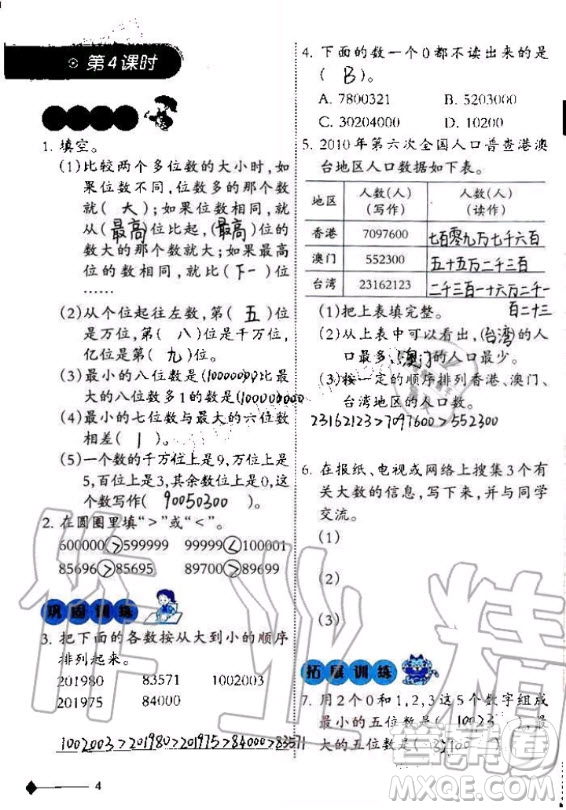 第4课时
1. 填空。
(1)比较两个多位数的大小时,如
果位数不同,位数多的那个数就
(大);如果位数相同,就
从(最高)位比起,(最高)位的
数大的那个数就大;如果最高
位的数相同,就比(下一)位
……
(2)从个位起往左数,第(五)位
是万位,第(八)位是千万位,
亿位是第(九)位。
(3)最小的八位数是(10000000)比
最大的八位数多1的数是(100000000
(4)最小的七位数与最大的六位数
相差(1)。
(5)一个数的千万位上是9,万位上是
5,百位上是3,其余数位上是0,这
个数写作(90050300)
2. 在圆圈里填“>”或“<”。
600000>599999 99999<100001
85696>85695 89700>89699
巩固训练
3. 把下面的各数按从大到小的顺序
排列起来。
201980 83571 1002003
201975 84000
1002003>201980>201975>84000>83571
4
4. 下面的数一个0都不读出来的是
(B)。
A. 7800321 B. 5203000
C. 30204000 D. 10020
5. 2010年第六次全国人口普查港澳
台地区人口数据如下表。
地区 人数(人)(写作) 人数(人)(读作)
香港 7097600 七百零九万七千六百
澳门 552300 五十五万二千三百
台湾 23162123 二千三百一十六万二千一
百二十三
(1)把上表填完整。
(2)从上表中可以看出,(台湾)的人
口最多,(澳门)的人口最少。
(3)按一定的顺序排列香港、澳门、
台湾地区的人口数。
23162123>7097600>552300
6. 在报纸、电视或网络上搜集3个有
关大数的信息,写下来,并与同学
交流。
(1)
(2)
(3)
拓展训练
7. 用2个0和1,2,3这5个数字组成
最小的五位数是(10023),最
大的五位数是(32100)
作业精灵
答案圈
MXQE.COM